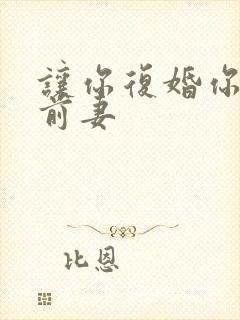 讓你復婚你
前妻
比恩